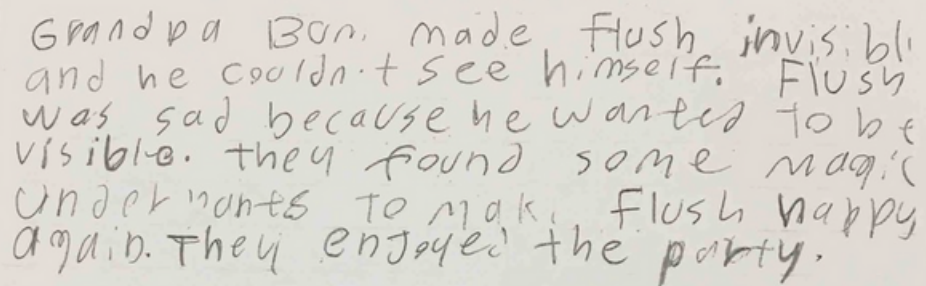 Grandpa Bun. made flush invisibl
and he couldn't see himself. Flush
was sad because he wanted to be
visible. they found some magic
underpants to make flush happy
again. They enjoyed the party.